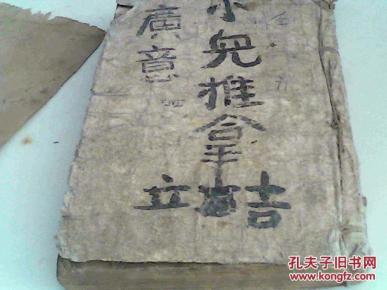 小兒推拿
廣意
吉立
孔夫子旧书网